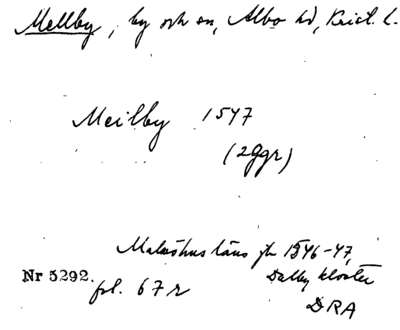 Mellby, by och sn, Albo hd, Krist. l.
Meilby 1547
(2ggr)
Malmöhus läns jb 1546-47,
Dalby kloster
Nr 5292. fol. 67 r
DRA